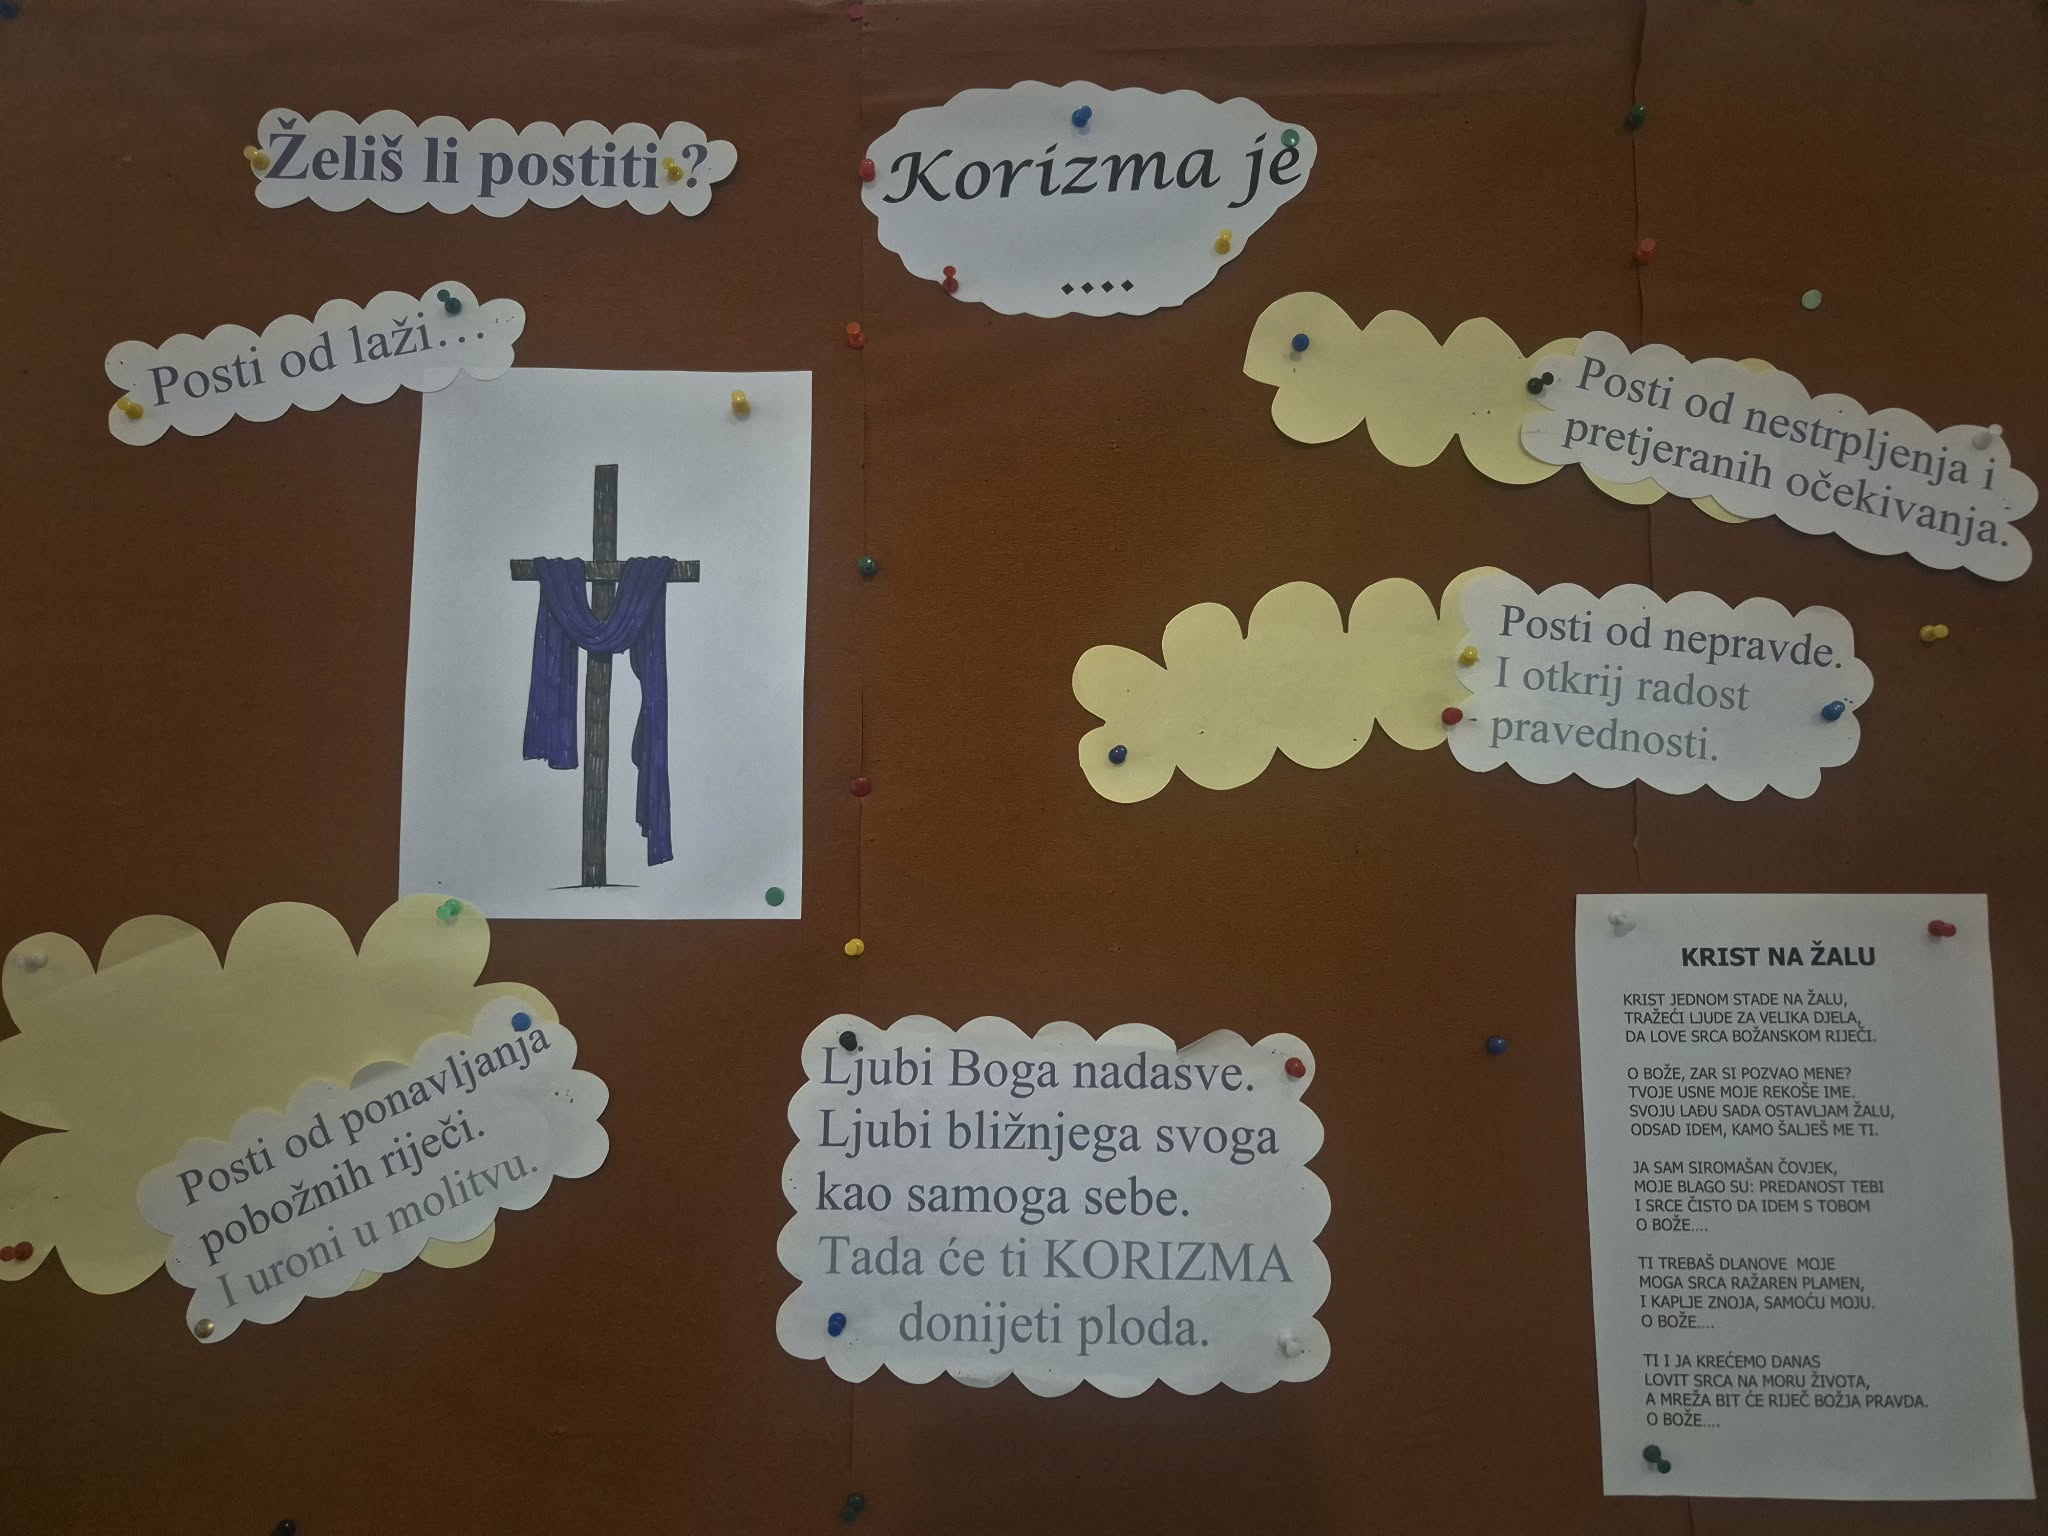 Želiš li postiti ?
Korizma je
....
Posti od laži…
Posti od nestrpljenja i
pretjeranih očekivanja.
Posti od nepravde.
I otkrij radost
pravednosti.
Posti od ponavljanja
pobožnih riječi.
I uroni u molitvu.
Ljubi Boga nadasve.
Ljubi bližnjega svoga
kao samoga sebe.
Tada će ti KORIZMA
donijeti ploda.
KRIST NA ŽALU
KRIST JEDNOM STADE NA ŽALU,
TRAŽEĆI LJUDE ZA VELIKA DJELA,
DA LOVE SRCA BOŽANSKOM RIJEČI.
O BOŽE, ZAR SI POZVAO MENE?
TVOJE USNE MOJE REKOŠE IME.
SVOJU LAĐU SADA OSTAVLJAM ŽALU,
ODSAD IDEM, KAMO ŠALJEŠ ME TI.
JA SAM SIROMAŠAN ČOVJEK,
MOJE BLAGO SU: PREDANOST TEBI
I SRCE ČISTO DA IDEM S TOBOM
O BOŽE....
TI TREBAŠ DLANOVE MOJE
MOGA SRCA RAŽAREN PLAMEN,
I KAPLJE ZNOJA, SAMOĆU MOJU.
O BOŽE....
TI I JA KREĆEMO DANAS
LOVIT SRCA NA MORU ŽIVOTA,
A MREŽA BIT ĆE RIJEČ BOŽJA PRAVDA.
O BOŽE....